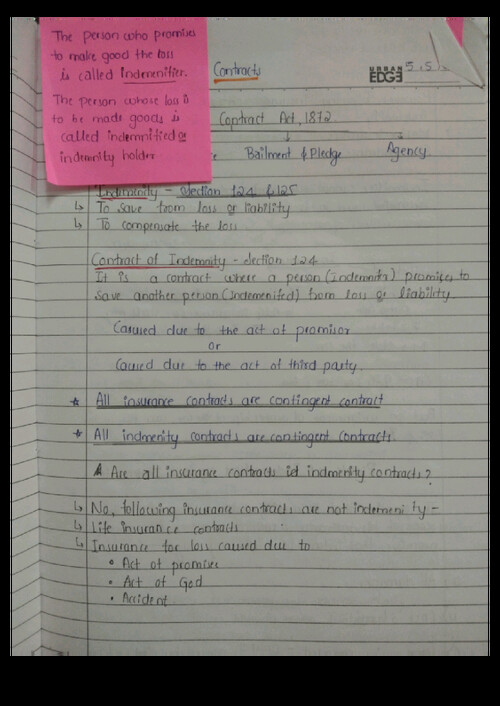 The person who promises
to make good the loss
is called indemenifier.
The person whose loss is
to be made goods is
called indemnitied or
indemnity holder
Contracts
URBAN
EDGE
5.5
Contract Act, 1872
Bailment & Pledge
Agency
Indemnity - Section 124 & 125
↳ To save from loss or liability
↳ To compensate the loss
Contract of Indemnity - Section 124
It is a contract where a person (Indemnifier) promises to
Save another person (Indemenified) from loss or liability
Caused due to the act of promisor
or
Caused due to the act of third party.
* All insurance contracts are contingent contract
* All indmenity contracts are contingent contracts.
Are all insurance contracts indmenity contracts?
↳ No, following insurance contracts are not indemenity -
↳ Life insurance contracts
↳ Insurance for loss caused due to
• Act of promisee
• Act of God
• Accident